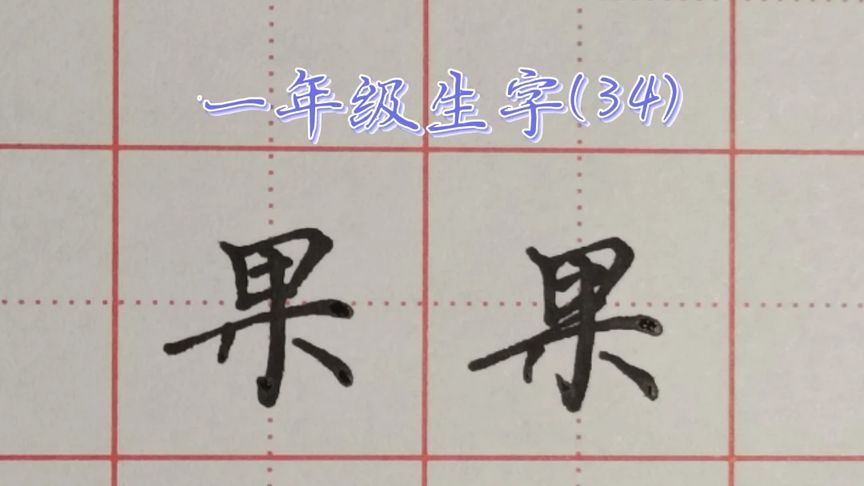 一年级生字(34)
果 果